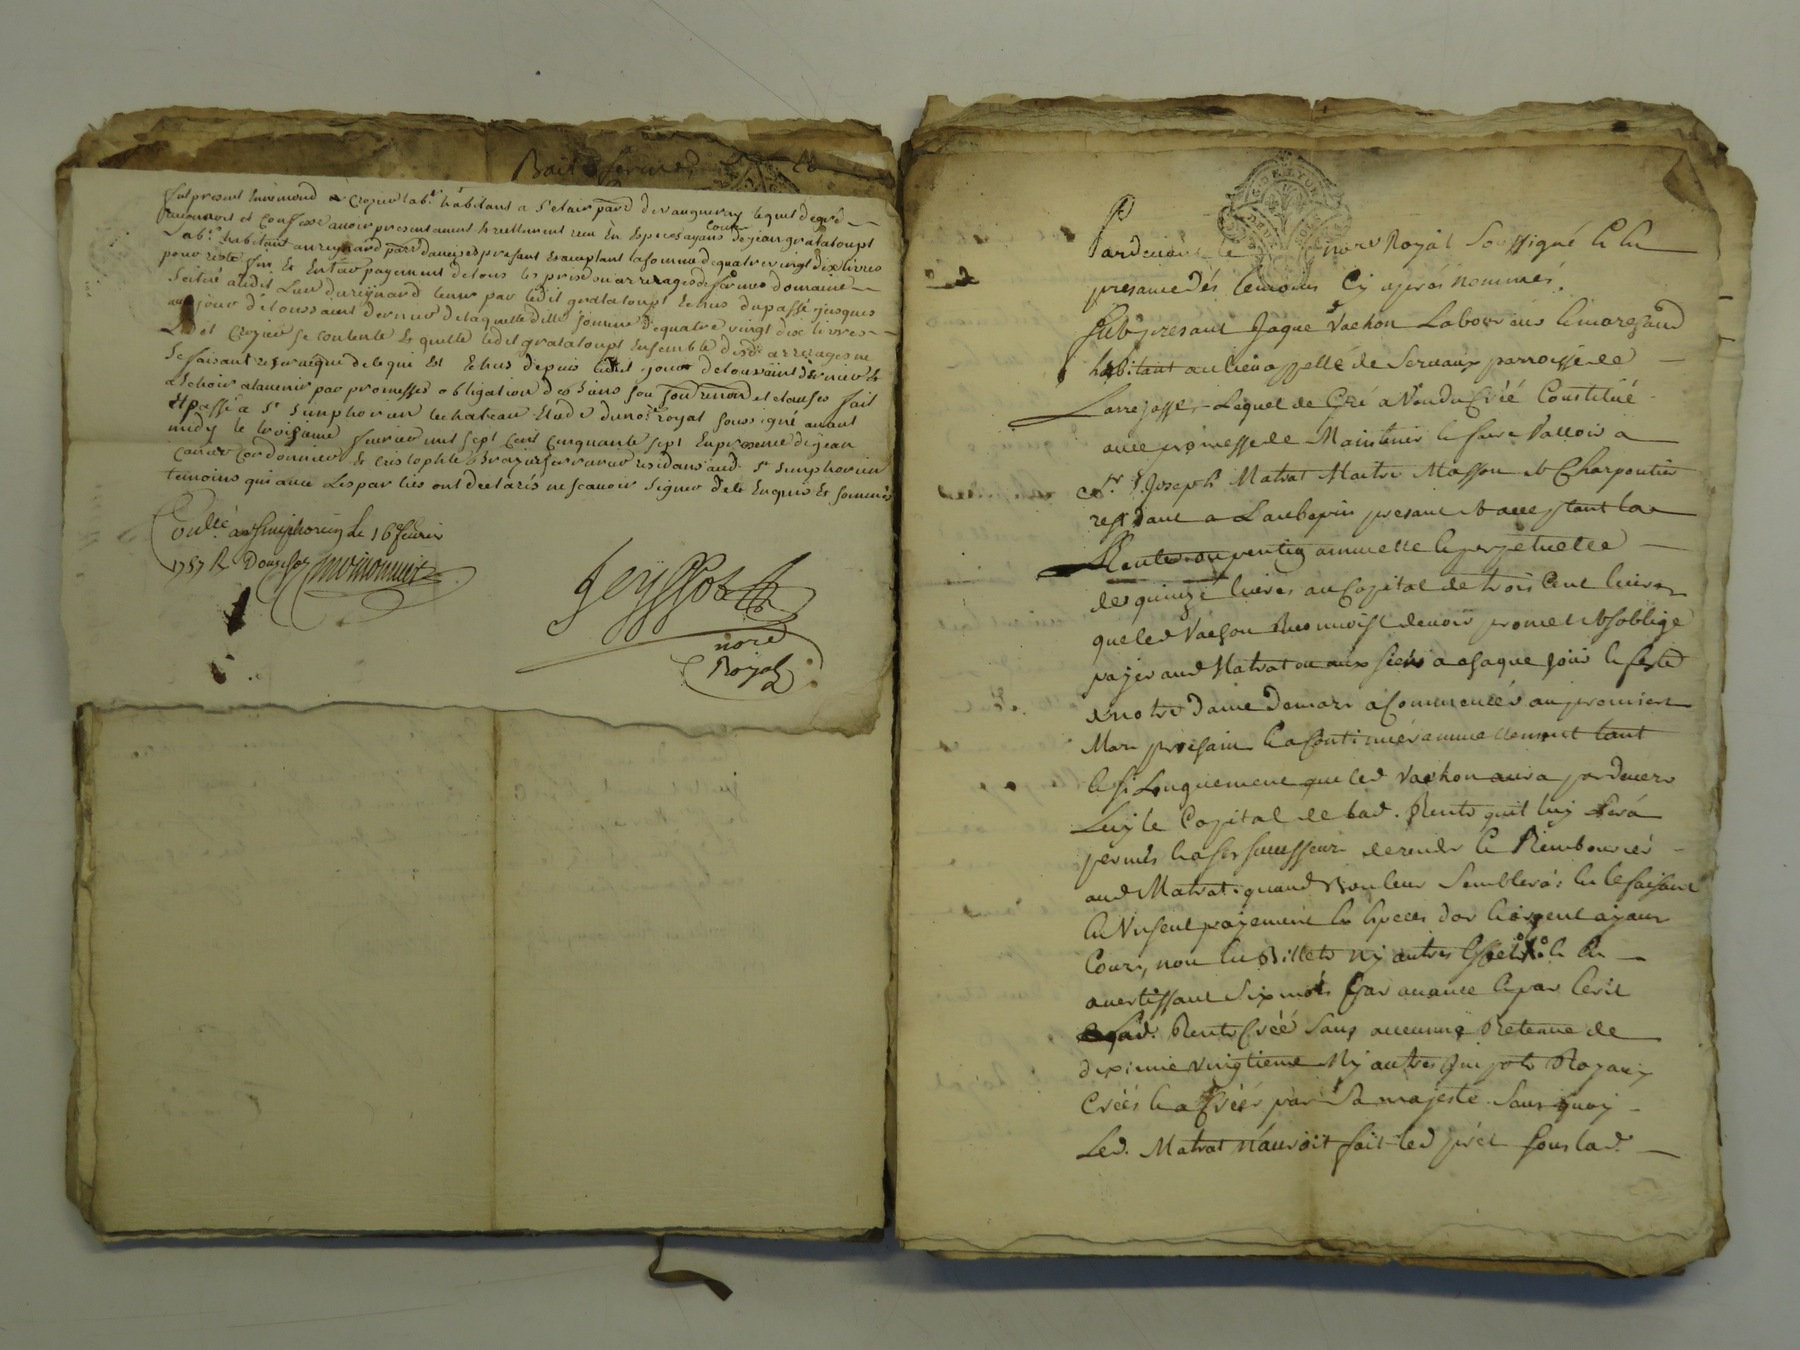 Bail a ferme
fut present Enémond Crozier lab.r habitant a St clair parr.e de vaugneray lequel de gré
reconnoit et confesse avoir presentement et reellement receu En Especes ayans cour de jean grataloupt
Lab.r habitant au reynard parr.e d'aveizes present et acceptant la somme de quatre vingt dix livres
pour reste fin et Entier payement de tous les prix ou arrerages de fermes domaine
scitué audit Lieu du reynard tenu par ledit grataloupt Echus du passé jusques
au jour de toussaint dernier de laquelle ditte somme de quatre vingt dix livres
Ledet Crozier se contente Et quitte ledit grataloupt Ensemble desd. arrerages ne
se faisant reserve que de ce qui Est Echus depuis ledit jour de toussaint dernier Et
a Echoir alavenir par promesses obligation des biens sou soumission renon et clauses fait
Et passé a St Simphorien le chateau Etude du no.re royal soussigné avant
midy le troisieme fevrier mil sept Cent Cinquante sept En presence de jean
Cordonnier Et Cristophle Brazier serrurier residans aud. St Simphorien
temoins qui avec Les parties ont declarés ne scavoir signer de ce Enquis Et sommés
Con.llé a St Simphorien le 16 fevrier
1757 R. Douze sols
Geyssot
nore
Royal
Pardevant le nore Royal Soussigné & En
presance dés temoins Cy aprés nommés.
fut presant Jaque Vachon Laboureur & marchand
habitant au lieu appellé de Servaux parroisse de
Larrajasse, Lequel de Gré a Vendu Créé Constitué
avec promesse de Maintenir & faire Valloir a
Sr Joseph Matrat Maitre Masson & Charpentier
residant a Laubepin presant & acceptant la
Rente ou pention annuelle & perpetuelle
de quinze livres au Capital de trois Cent livres
que led Vachon Reconnoist devoir promet & soblige
payer aud Matrat ou aux siens a chaque jour & feste
de notre Dame de mars a Commencer au premier
Mars prochain & a Continuer annuellement tant
& si Longuement que led Vachon aura par devers
Luy le Capital de lad. Rente quil luy sera
permis & a ses successeurs de rendre & Rembourcer
aud Matrat quand bon leur Semblera, En le faisant
En Un seul payement En Especes dor & argent ayant
Cours, non En Billets Ny autres Effets & En
avertissant Six mois par avance & par Ecrit
lad. Rente Créé Sans aucunne Retenue de
dixieme vingtieme Ny autres Impots Royaux
Créés & a Créér par Sa majesté Sans quoy
Led. Matrat n'auroit fait led prét Sous lad.